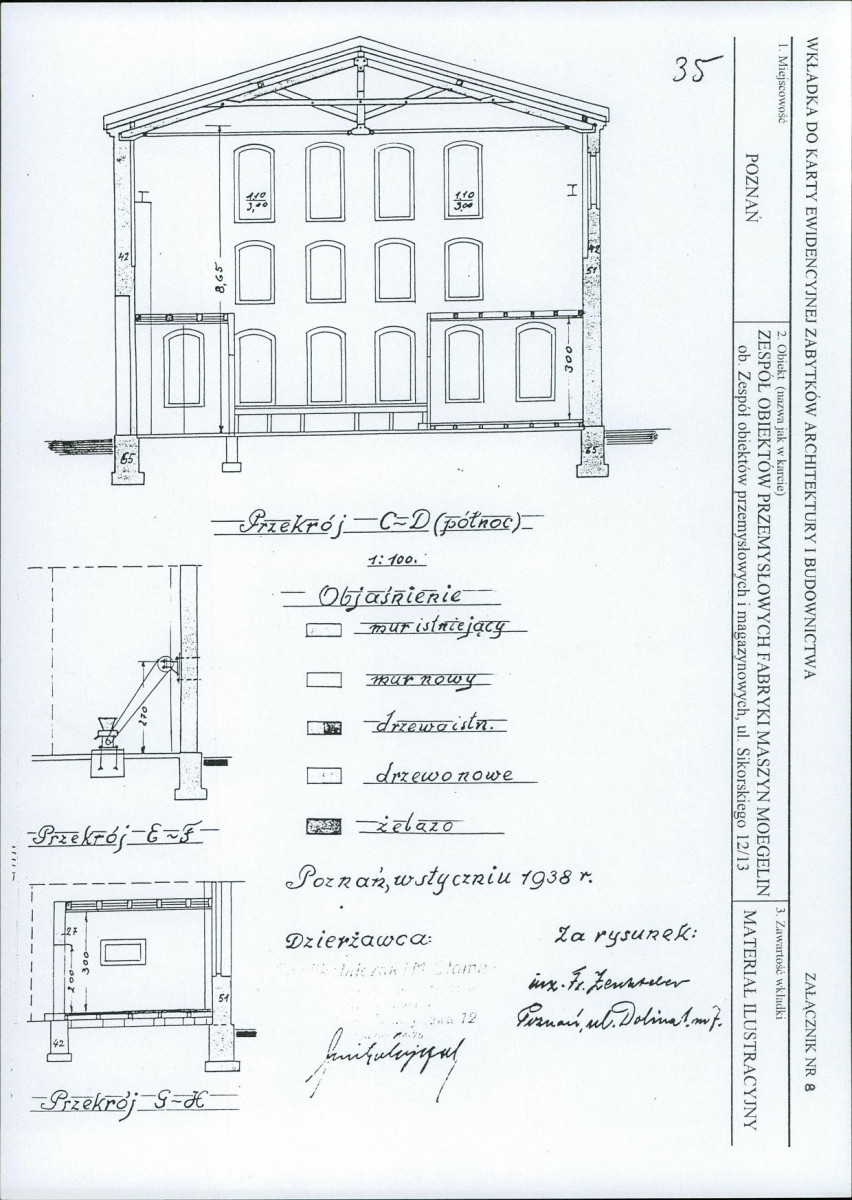 WKŁADKA DO KARTY EWIDENCYJNEJ ZABYTKÓW ARCHITEKTURY I BUDOWNICTWA
ZAŁĄCZNIK NR 8
1. Miejscowość
POZNAŃ
2. Obiekt (nazwa jak w karcie)
ZESPÓŁ OBIEKTÓW PRZEMYSŁOWYCH FABRYKI MASZYN MOEGELIN
ob. Zespół obiektów przemysłowych i magazynowych, ul. Sikorskiego 12/13
3. Zawartość wkładki
MATERIAŁ ILUSTRACYJNY
35
1,10
3,00
1,10
3,00
42
8,65
42
51
300
65
65
Przekrój C~D (północ)
1:100.
Objaśnienie
mur istniejący
mur nowy
drzewo istn.
drzewo nowe
żelazo
270
Przekrój E~F
27
200
300
51
42
Przekrój G~H
Poznań, w styczniu 1938 r.
Dzierżawca:
Za rysunek:
12
inż. Fr.
Poznań, ul. Dolina 1. m 7.